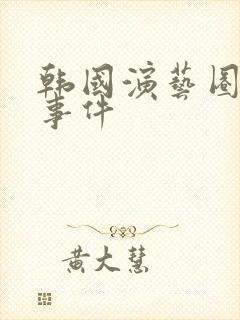 韩國演藝圈
事件
黄大慧